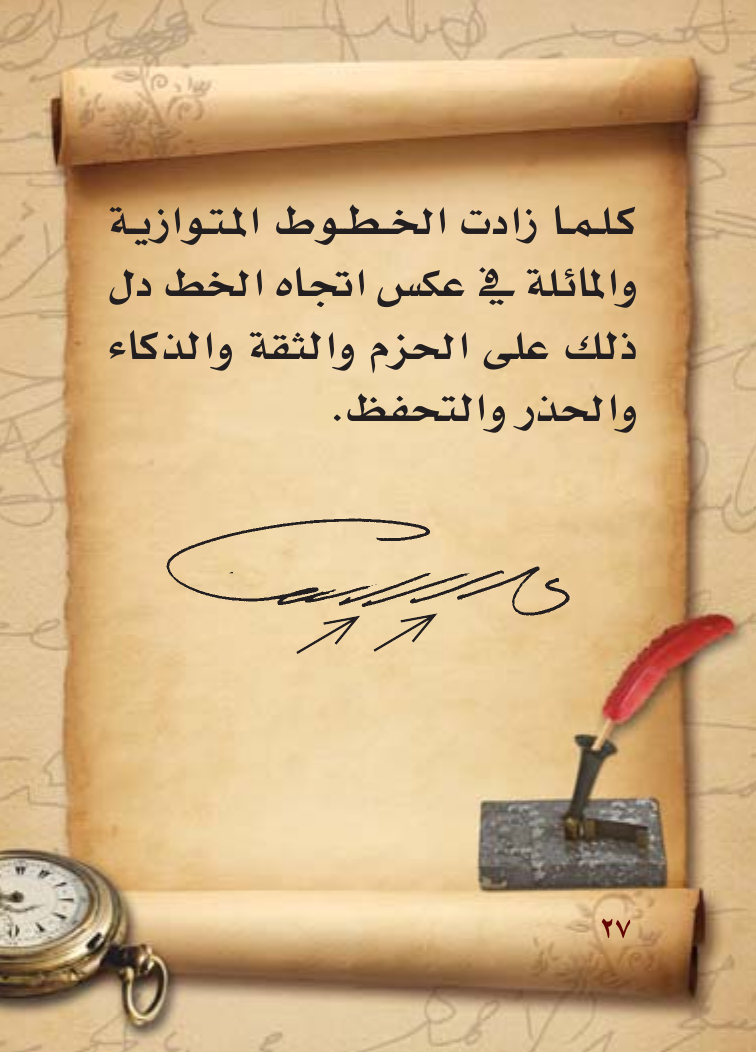 كلما زادت الخطوط المتوازية
والمائلة في عكس اتجاه الخط دل
ذلك على الحزم والثقة والذكاء
والحذر والتحفظ.
٢٧